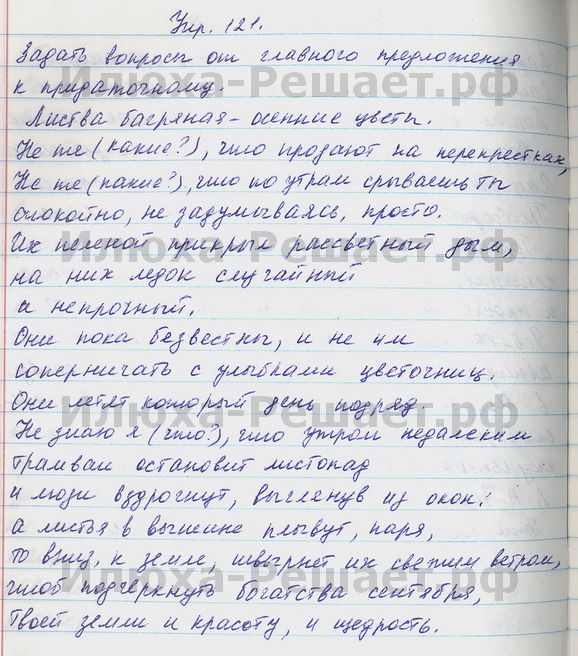 Упр. 121.
Задать вопросы от главного предложения
к придаточному.
Листва багряная - осенние цветы.
Не те (какие?), что продают на перекрестках,
Не те (какие?), что по утрам срываешь ты
спокойно, не задумываясь, просто.
Их пеленой прикрыл рассветный дым,
на них ледок случайный
и непрочный.
Они пока безвестны, и не им
соперничать с улыбками цветочниц.
Они летят который день подряд.
Не знаю я (что?), что утром недалеким
трамваи остановит листопад
и люди вздрогнут, выглянув из окон:
а листья в вышине плывут, паря,
то вниз, к земле, швырнет их свежим ветром,
чтоб подчеркнуть богатства сентября,
твоей земли и красоту, и щедрость.
Илюха-Решает.рф
Илюха-Решает.рф
Илюха-Решает.рф
Илюха-Решает.рф
Илюха-Решает.рф